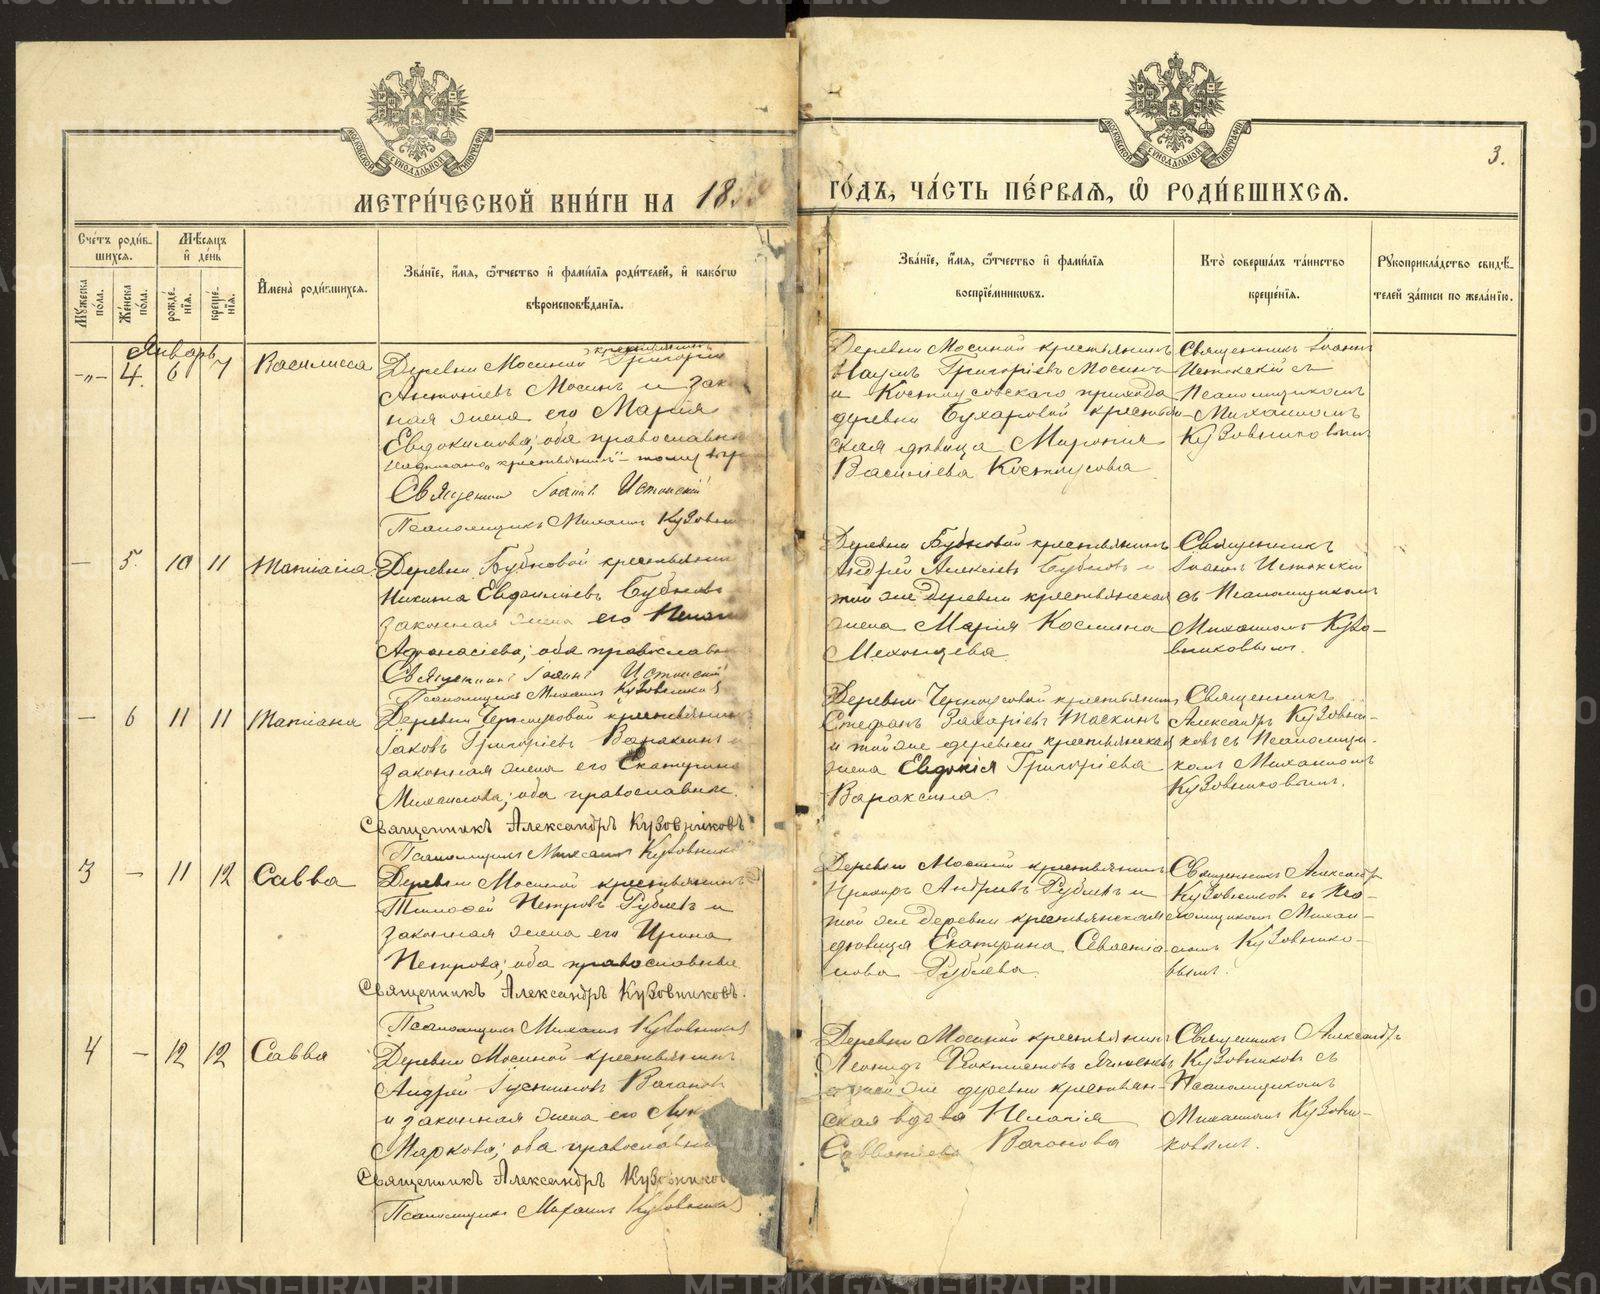 МЕТРИ́ЧЕСКОЙ КНИ́ГИ НА 18 ГО́ДЪ, ЧА́СТЬ ПЕ́РВАЯ, Ѡ҆ РОДИ́ВШИХСЯ.
3.
Сче́тъ роди́в-
шихся.
Му́жеска по́ла.
Же́нска по́ла.
Мѣ́сяцъ и҆ де́нь
рожде́нїя.
креще́нїя.
И҆мена̀ роди́вшихся.
Зва́нїе, и҆́мя, ѻ҆́тчество и҆ фами́лїя роди́телей, и҆ како́гѡ
вѣроисповѣ́данїя.
Зва́нїе, и҆́мя, ѻ҆́тчество и҆ фами́лїя
воспрїе́мникѡвъ.
Кто̀ соверша́лъ та́инство
креще́нїя.
Рукоприкла́дство свидѣ́-
телей за́писи по жела́нїю.
Январь
-„- 4. 6 7 Василисса
крестьянинъ
Деревни Мосиной Григорій
Антоніевъ Мосинъ и зак
ная жена его Марія
Евдокимова; оба православн
Надписано „крестьянинъ"
Священникъ Іоаннъ Истокскій
Псаломщикъ Михаилъ Кузовни
Деревни Мосиной крестьянинъ
Наумъ Григоріевъ Мосинъ
и Костоусовскаго прихода
деревни Бухаровой крестьян-
ская дѣвица Миронія
Василіева Костоусова
Священникъ Іоаннъ
Истокскій съ
Псаломщикомъ
Михаиломъ
Кузовниковымъ
— 5. 10 11 Татіана
Деревни Бубновой крестьянинъ
Никита Евдокимовъ Бубновъ
законная жена его Пелагія
Афанасіева; оба православн
Священникъ Іоаннъ Истокскій
Псаломщикъ Михаилъ Кузовников
Деревни Бубновой крестьянинъ
Андрей Алексіевъ Бубновъ и
той же деревни крестьянская
жена Марія Космина
Мехонцева.
Священникъ
Іоаннъ Истокскій
съ Псаломщикомъ
Михаиломъ Кузо-
вниковымъ.
— 6 11 11 Татіана
Деревни Черноусовой крестьянинъ
Іаковъ Григоріевъ Вараксинъ и
законная жена его Екатерина
Михаилова; оба православные.
Священникъ Александръ Кузовниковъ
Псаломщикъ Михаилъ Кузовников
Деревни Черноусовой крестьянинъ
Стефанъ Захаріевъ Таскинъ
и той же деревни крестьянская
жена Евдокія Григоріева
Вараксина.
Священникъ
Александръ Кузовни-
ковъ съ Псаломщи-
комъ Михаиломъ
Кузовниковымъ.
3 — 11 12 Савва
Деревни Мосиной крестьянинъ
Тимофей Петровъ Рублевъ и
законная жена его Ирина
Петрова; оба православные
Священникъ Александръ Кузовниковъ.
Псаломщикъ Михаилъ Кузовников
Деревни Мосиной крестьянинъ
Прохоръ Андреевъ Рублевъ и
той же деревни крестьянская
дѣвица Екатерина Севастіа-
нова Рублева.
Священникъ Александръ
Кузовниковъ съ Пса-
ломщикомъ Михаи-
ломъ Кузовнико-
вымъ.
4 — 12 12 Савва
Деревни Мосиной крестьянинъ
Андрей Іустиновъ Вагановъ
и законная жена его Лук
Маркова; оба православны
Священникъ Александръ Кузовников
Псаломщикъ Михаилъ Кузовников
Деревни Мосиной крестьянинъ
Леонидъ Феоктистовъ
той же деревни крестьян-
ская вдова Пелагія
Савватіева Ваганова
Священникъ Александръ
Кузовниковъ съ
Псаломщикомъ
Михаиломъ Кузовни-
ковымъ.
METRIKI.GASO-URAL.RU